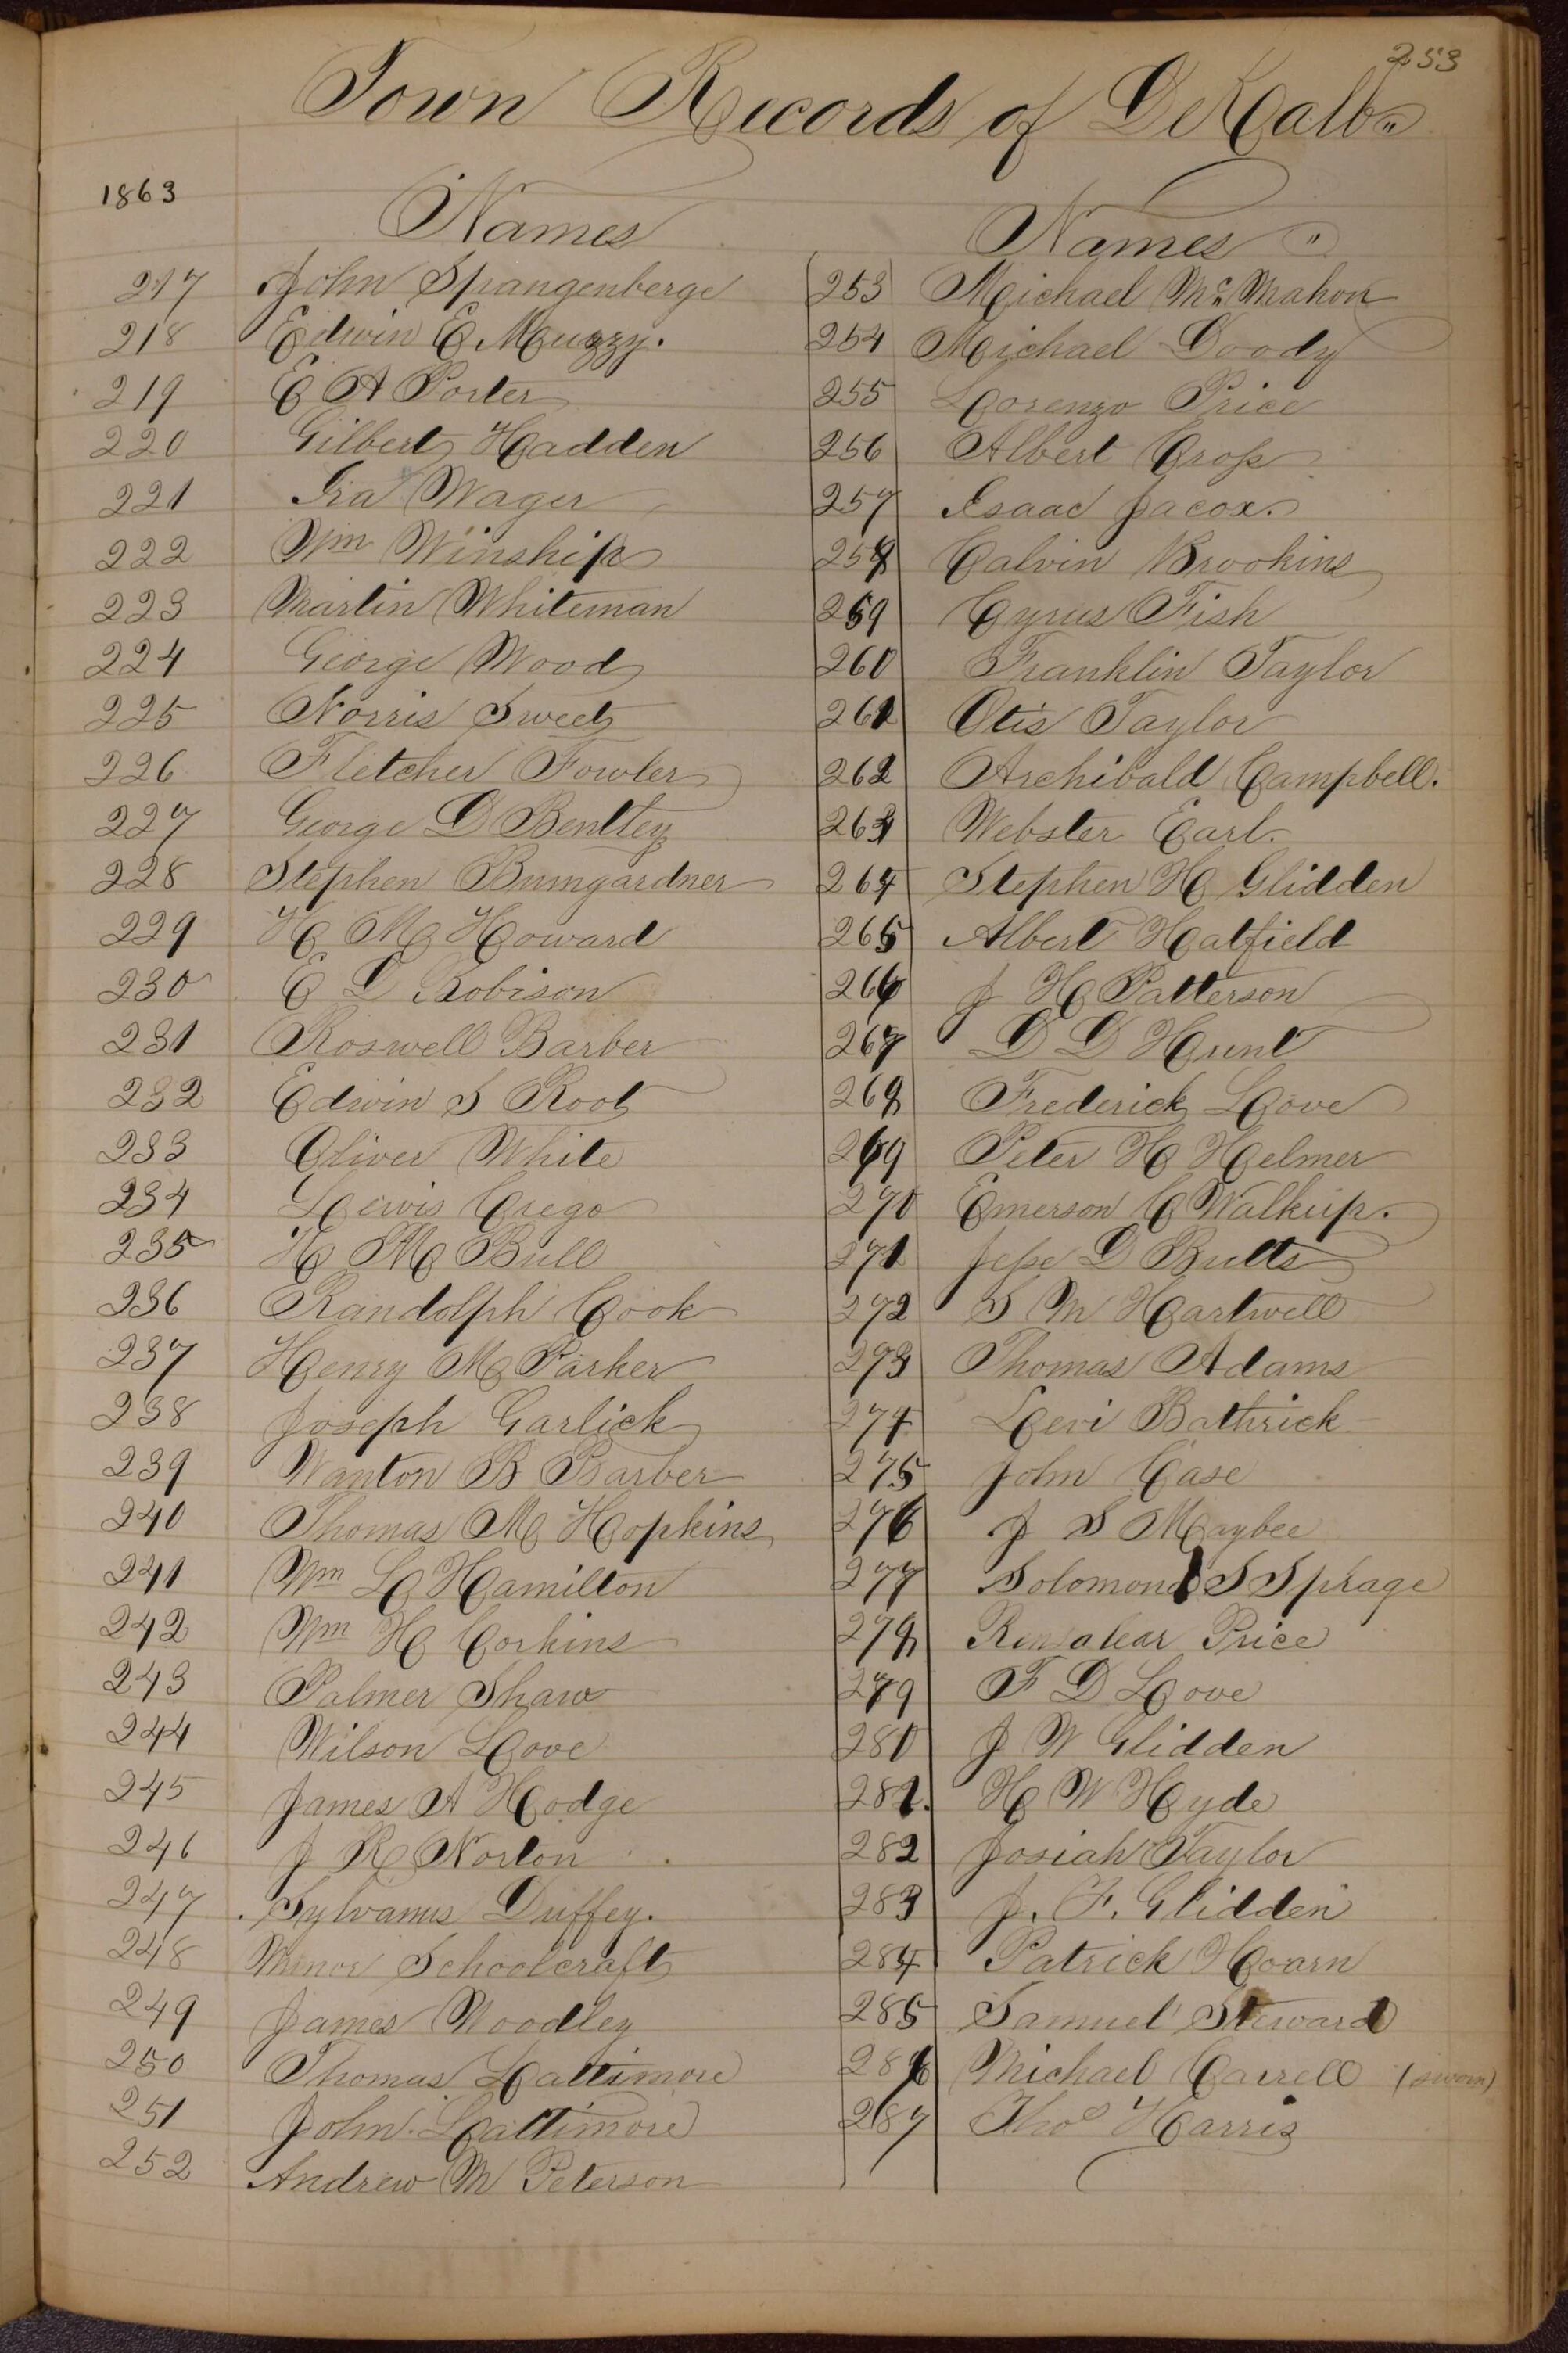 253
Town Records of DeKalb "
1863
Names
217 John Spangenberge
218 Edwin E Muzzy.
219 E A Porter
220 Gilbert Hadden
221 Ira Wager
222 Wm Winship
223 Martin Whiteman
224 George Wood
225 Norris Sweet
226 Fletcher Fowler
227 George D Bentley
228 Stephen Bumgardner
229 H M Howard
230 E L Robison
231 Roswell Barber
232 Edwin S Root
233 Oliver White
234 Lewis Crego
235 H M Bull
236 Randolph Cook
237 Henry M Parker
238 Joseph Garlick
239 Wanton B Barber
240 Thomas M Hopkins
241 Wm L Hamilton
242 Wm H Corkins
243 Palmer Shaw
244 Wilson Love
245 James A Hodge
246 J R Norton
247 Sylvanus Duffey.
248 Minor Schoolcraft
249 James Woodley
250 Thomas Lattimore
251 John Lattimore
252 Andrew M Peterson
Names "
253 Michael Mc Mahon
254 Michael Doody
255 Lorenzo Price
256 Albert Cross
257 Isaac Jacox.
258 Calvin Brookins
259 Cyrus Fish
260 Franklin Taylor
261 Otis Taylor
262 Archibald Campbell.
263 Webster Earl.
264 Stephen H Glidden
265 Albert Hatfield
266 J H Patterson
267 D D Hunt
268 Frederick Love
269 Peter H Helmer
270 Emerson C Walkup.
271 Jesse D Butts
272 S M Hartwell
273 Thomas Adams
274 Levi Bathrick
275 John Case
276 J S Maybee
277 Solomon S Sprage
278 Rensalear Price
279 F D Love
280 J W Glidden
281. H W Hyde
282 Josiah Taylor
283 J. F. Glidden
284 Patrick Hoarn
285 Samuel Steward
286 Michael Carrell (sworn)
287 Thos Harris